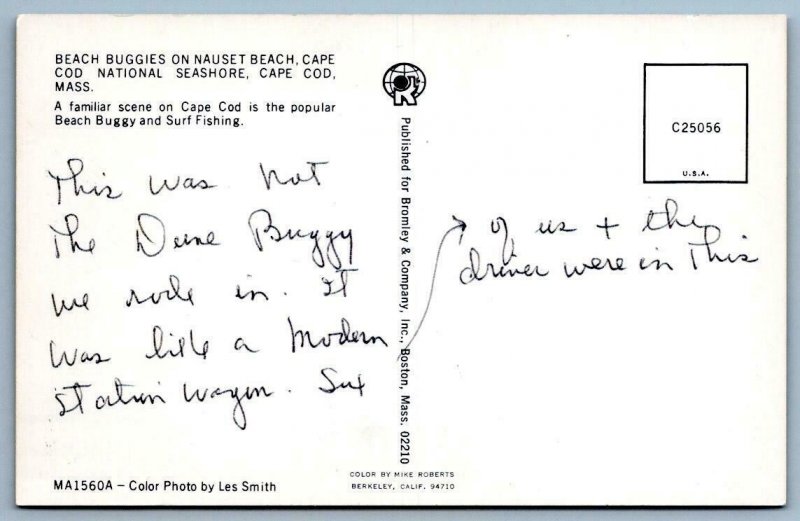 BEACH BUGGIES ON NAUSET BEACH, CAPE
COD NATIONAL SEASHORE, CAPE COD,
MASS.
A familiar scene on Cape Cod is the popular
Beach Buggy and Surf Fishing.
This was not
the Dune Buggy
we rode in. It
was like a modern
station wagon. Six
of us + the
driver were in this
Published for Bromley & Company, Inc., Boston, Mass. 02210
C25056
U.S.A.
COLOR BY MIKE ROBERTS
BERKELEY, CALIF. 94710
MA1560A – Color Photo by Les Smith